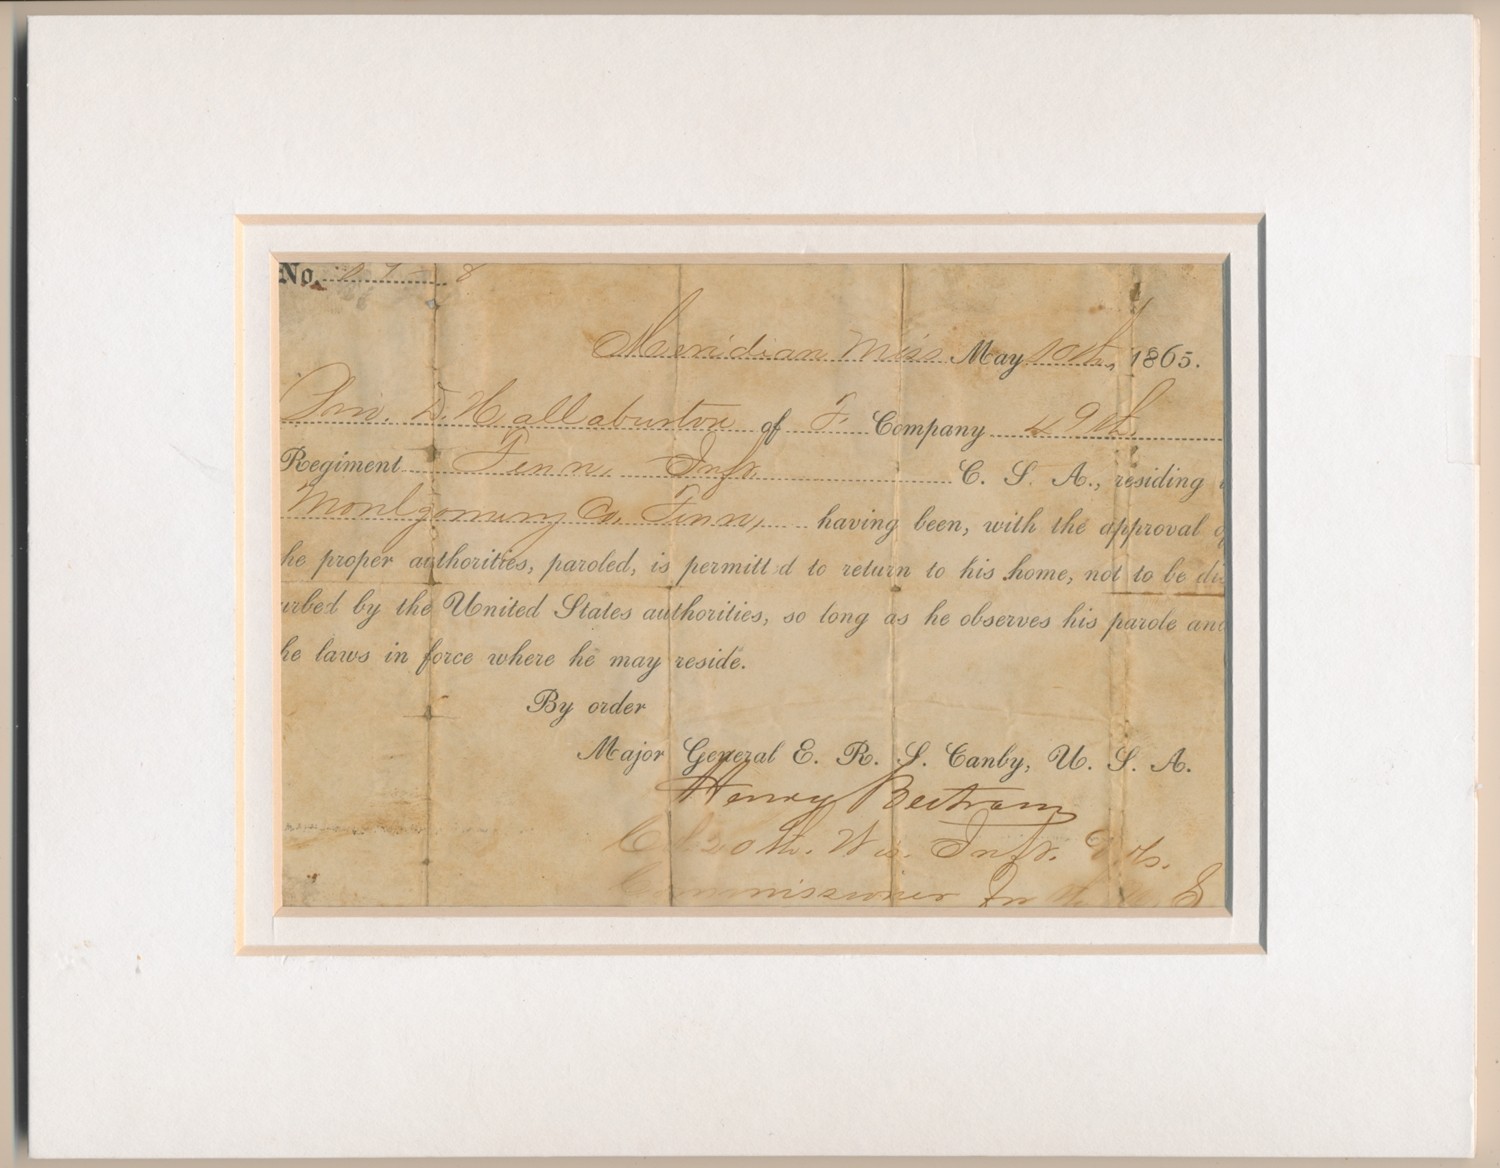 No.
Meridian Miss May 10th, 1865.
Priv. D. Hallaburton of F. Company 49th
Regiment Tenn. Infr. C. S. A., residing
Montgomery Co. Tenn, having been, with the approval o
he proper authorities, paroled, is permitt d to return to his home, not to be dis
urbed by the United States authorities, so long as he observes his parole and
he laws in force where he may reside.
By order
Major General E. R. S. Canby, U. S. A.
Henry Bertram
Col 20th. Wis. Infr. Vols.
Commissioner for U. S